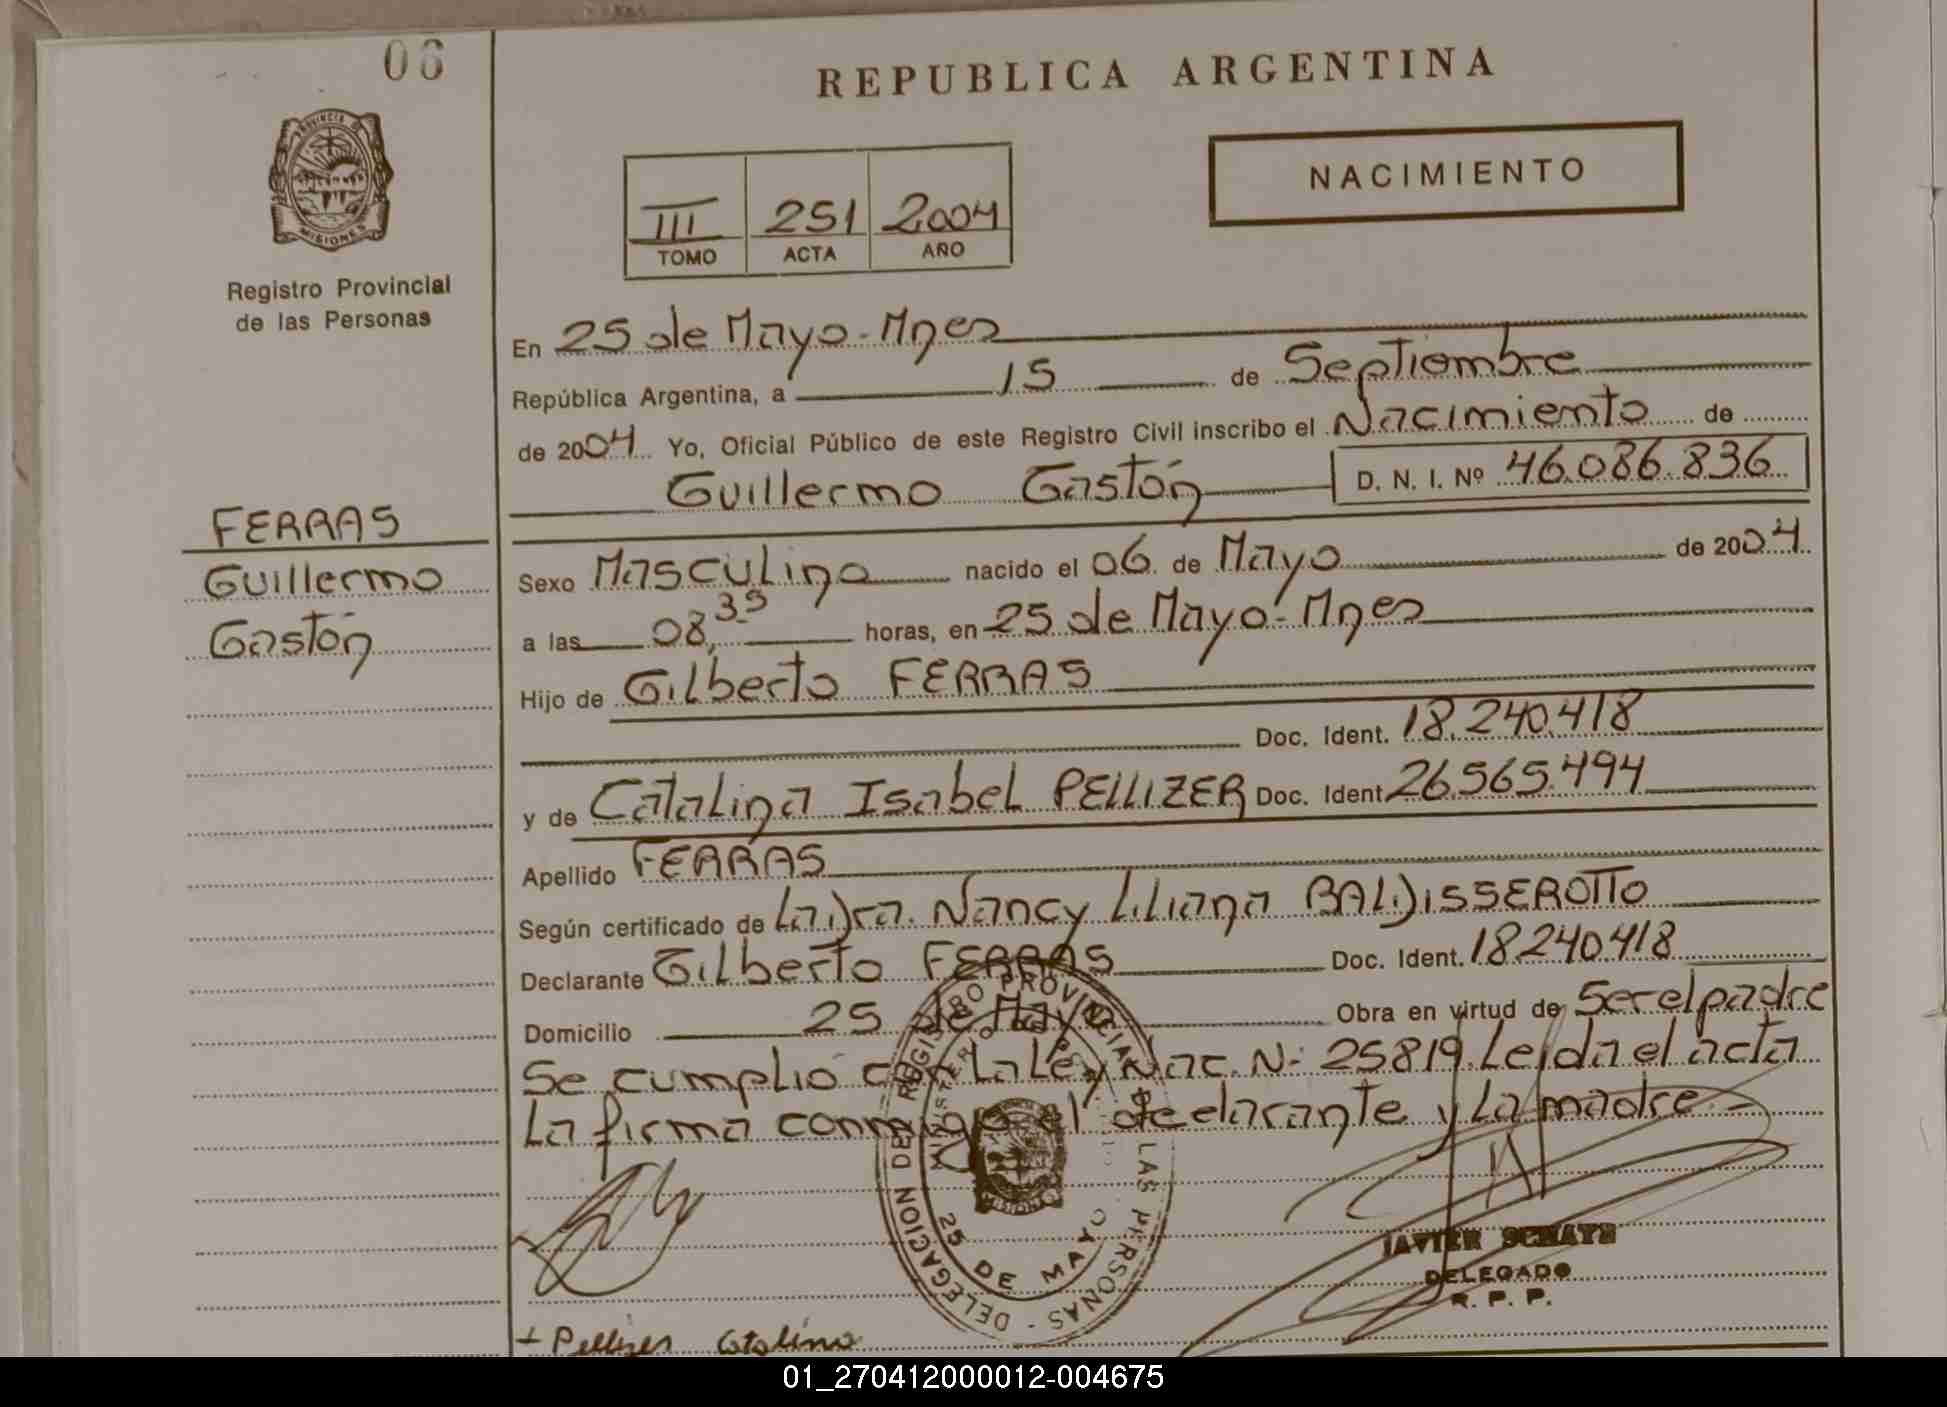 06
REPUBLICA ARGENTINA
PROVINCIA DE
MISIONES
Registro Provincial
de las Personas
III 251 2004
TOMO ACTA AÑO
NACIMIENTO
En 25 de Mayo - Mnes
República Argentina, a 15 de Septiembre
de 2004 Yo, Oficial Público de este Registro Civil inscribo el Nacimiento de
Guillermo Gastón D. N. I. Nº 46.086.836
FERRAS
Guillermo
Gastón
Sexo Masculino nacido el 06 de Mayo de 2004
a las 08,35 horas, en 25 de Mayo - Mnes
Hijo de Gilberto FERRAS
Doc. Ident. 18.240.418
y de Catalina Isabel PELLIZER Doc. Ident. 26.565.494
Apellido FERRAS
Según certificado de La Dra. Nancy Liliana BALDISSEROTTO
Declarante Gilberto FERRAS Doc. Ident. 18240418
Domicilio 25 de Mayo Obra en virtud de Ser el padre
Se cumplió con La Ley Nac. N: 25819. Leida el acta
La firma conmigo el declarante y La madre.-
DELEGACION DEL REGISTRO PROVINCIAL DE LAS PERSONAS -
25 DE MAYO
MISIONES
JAVIER SCHAYH
DELEGADO
R. P. P.
+ Pellizer Catalina
01_270412000012-004675